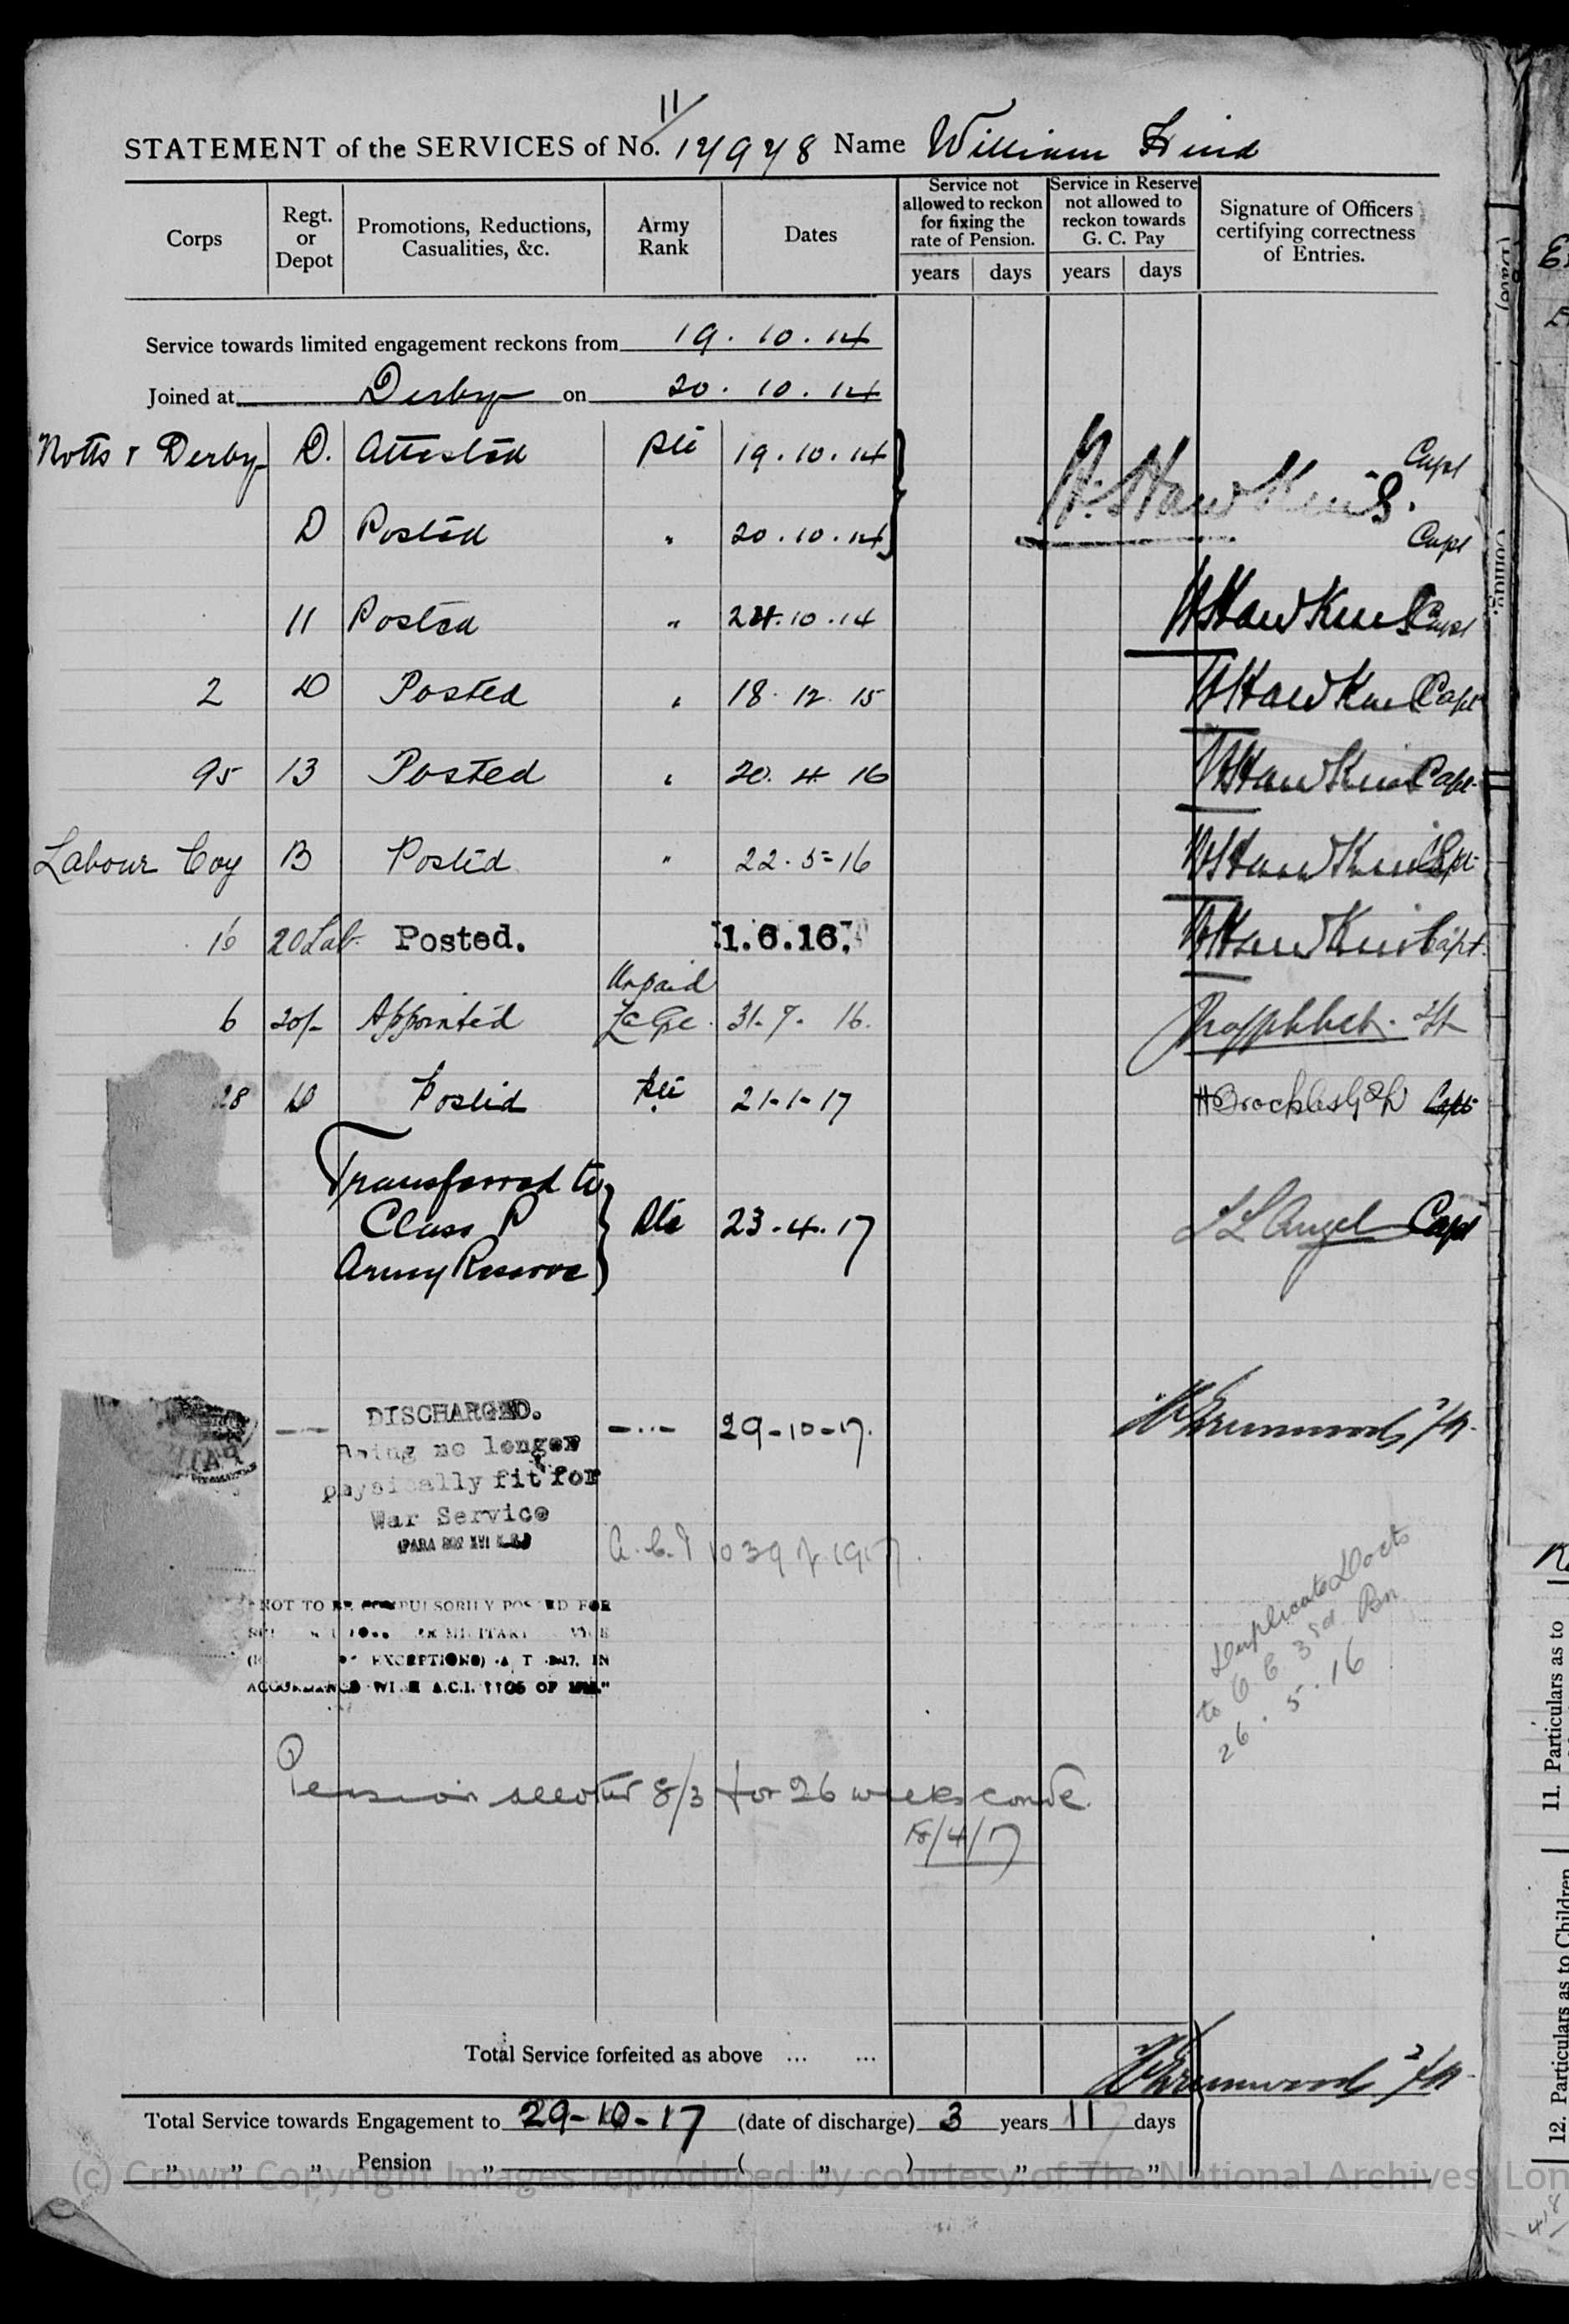 11/
STATEMENT of the SERVICES of No. 17978 Name William Hind
Corps
Regt. or Depot
Promotions, Reductions, Casualities, &c.
Army Rank
Dates
Service not allowed to reckon for fixing the rate of Pension.
years days
Service in Reserve not allowed to reckon towards G. C. Pay
years days
Signature of Officers certifying correctness of Entries.
Service towards limited engagement reckons from 19.10.14
Joined at Derby on 20.10.14
Notts & Derby D. Attested Pte 19.10.14 W. Hawkins. Capt
D Posted " 20.10.14 Capt
11 Posted " 24.10.14 W Hawkins Capt
2 D Posted " 18.12.15 W Hawkins Capt
95 13 Posted " 20.4.16 W Hawkins Capt
Labour Coy B Posted " 22.5.16 W Hawkins Capt
16 20 Lab Posted. 1.6.16. W Hawkins Capt.
Unpaid
6 20/- Appointed L/Cpl. 31.7.16. 2/Lt
28 D Posted Pte 21-1-17 Capt
Transferred to
Class P Pte 23.4.17 L L Angel Capt
Army Reserve
DISCHARGED. 29-10-17.
Being no longer
physically fit for
War Service
A.C.I 1039 of 1917.
NOT TO BE COMPULSORILY POSTED FOR
MILITARY
EXCEPTIONS) IN
ACCORDANCE WITH A.C.I. 1105 OF
Duplicate Docts
to O C 3rd Bn
26.5.16
Pension allotted 8/3 for 26 weeks condl.
18/4/17
Total Service forfeited as above ... ...
Total Service towards Engagement to 29-10-17 (date of discharge) 3 years 11 days
" " " Pension " ( " ) " "
(c) Crown Copyright Images reproduced by courtesy of The National Archives, Lon
11. Particulars as to
12. Particulars as to Children